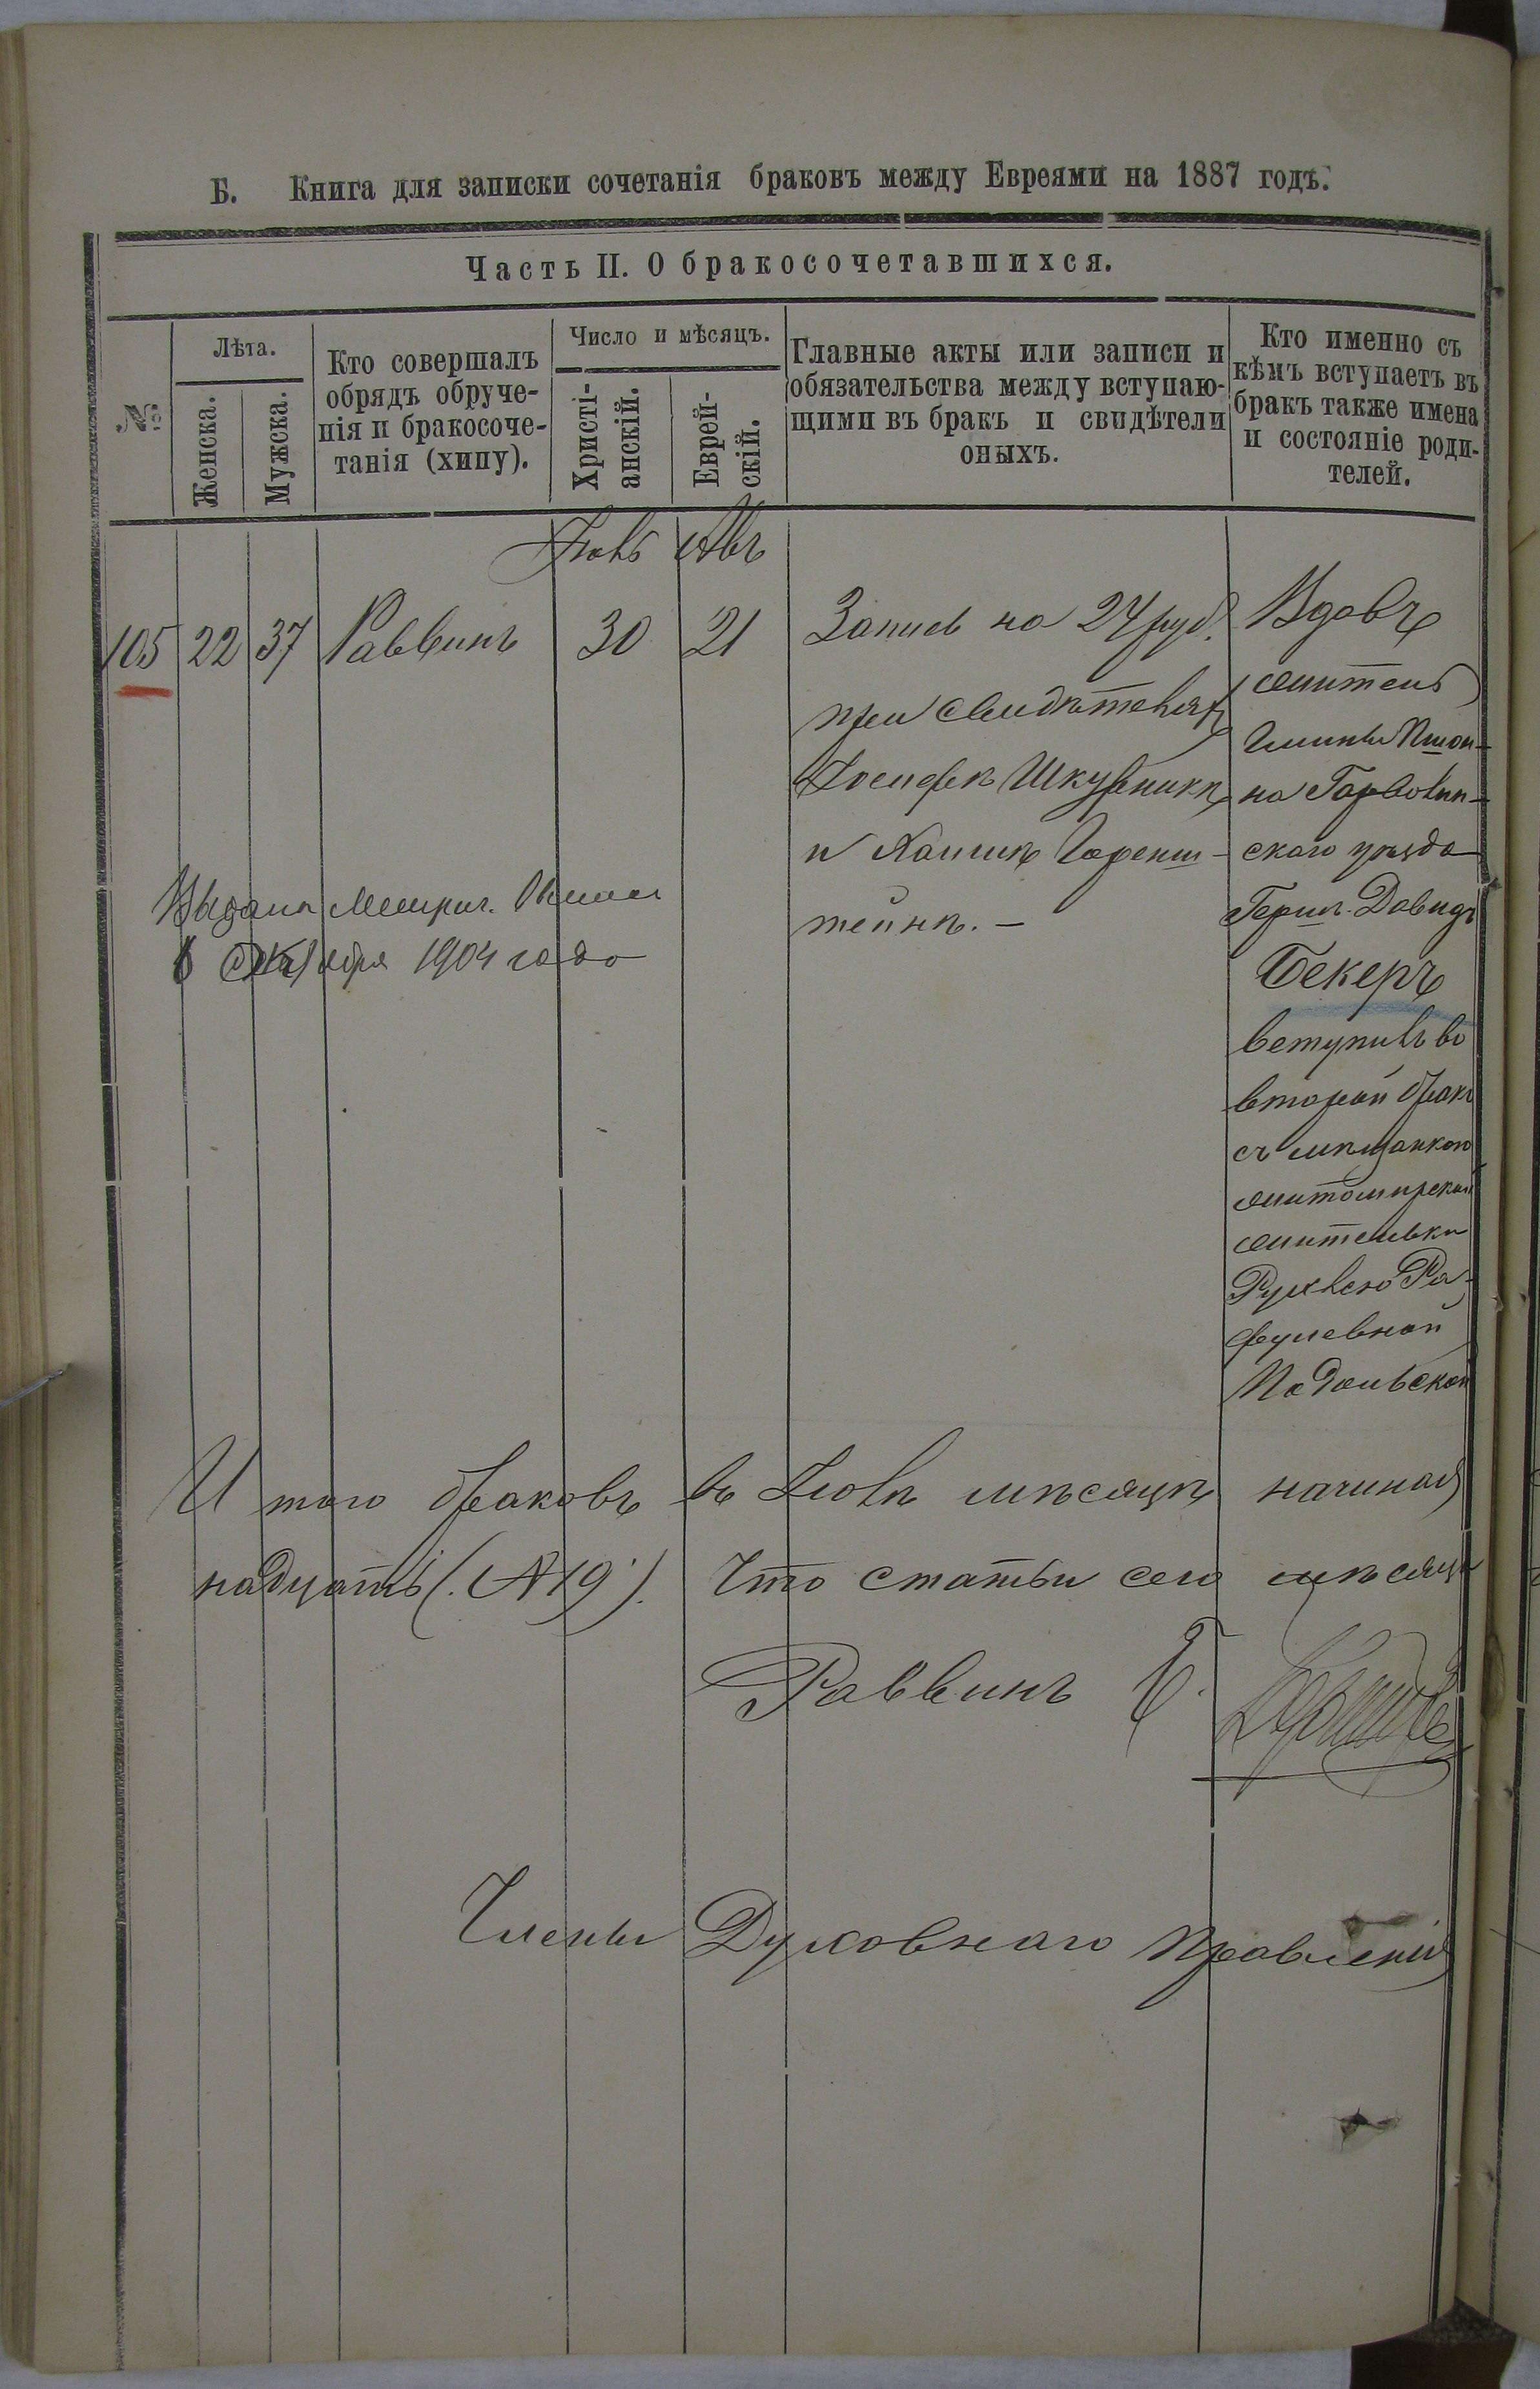 Б. Книга для записки сочетанія браковъ между Евреями на 1887 годъ.
Часть II. О бракосочетавшихся.
№
Лѣта.
Женска.
Мужска.
Кто совершалъ
обрядъ обруче-
нія и бракосоче-
танія (хипу).
Число и мѣсяцъ.
Христі-
анскій.
Еврей-
скій.
Главные акты или записи и
обязательства между вступаю-
щими въ бракъ и свидѣтели
оныхъ.
Кто именно съ
кѣмъ вступаетъ въ
бракъ также имена
и состояніе роди-
телей.
Іюль Авъ
105 22 37 Раввинъ 30 21
Запись на 24 руб.
при свидѣтеляхъ
Іосифѣ Шкурникѣ
и Хаимѣ Горенш-
тейнѣ. —
Вдовъ
житель
Гмины
на
скаго уѣзда
Герш. Давидъ
Бекеръ
вступилъ во
второй бракъ
съ мѣщанкою
житомирской
жительки
Рухлею Ра-
фулевной
Подольской
Выдана Метрич.
6 1904 года
И того браковъ въ Іюлѣ мѣсяцѣ начиная
надцать (. № 19 .) Что статьи сего мѣсяца
Раввинъ
Члены Духовнаго Правленія